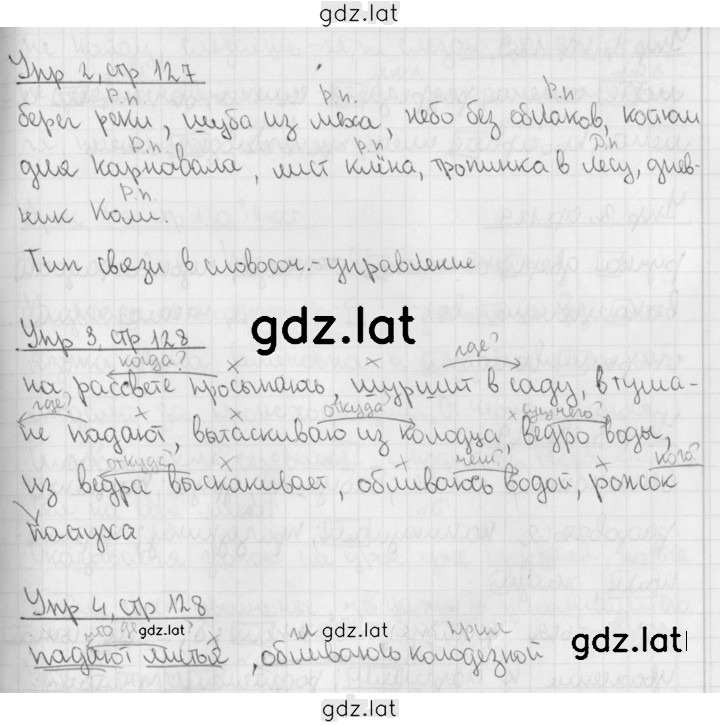 gdz.lat
Упр 2, стр 127
Р.п Р.п. Р.п
берег реки, шуба из меха, небо без облаков, костюм
Р.п. Р.п П.п
для карнавала, лист клёна, тропинка в лесу, днев-
Р.п.
ник Коли.
Тип связи в словосоч. - управление
gdz.lat
Упр 3, стр 128
когда? где?
на рассвете просыпаюсь, шуршит в саду, в тума-
где? откуда? с чем?
не падают, вытаскиваю из колодца, ведро воды,
откуда? чем? кого?
из ведра выскакивает, обливаюсь водой, рожок
пастуха
Упр 4, стр 128
gdz.lat gdz.lat
gdz.lat
падают листья, обливаюсь колодезной
gdz.lat